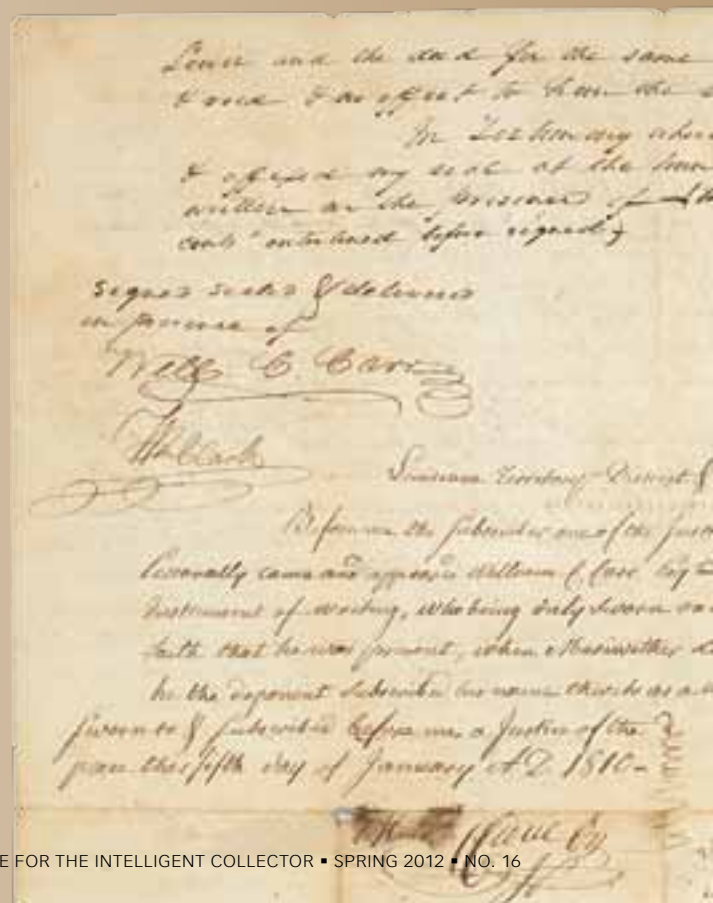 Lewis and the deed for the same
In Testimony where
& affixed my seal at the
written in the presence of
before signed
Signed sealed & delivered
in presence of
Will C. Carr
Wm Clark
Louisiana Territory District
Before me the subscriber one of the Just
Personally came and appeared William C. Carr Esq
Instrument of writing, who being duly sworn
saith that he was present, when Meriwether
he the deponent subscribed his name thereto as a
Sworn to & subscribed before me a Justice of the
peace this fifth day of January A.D. 1810
E FOR THE INTELLIGENT COLLECTOR ▪ SPRING 2012 ▪ NO. 16